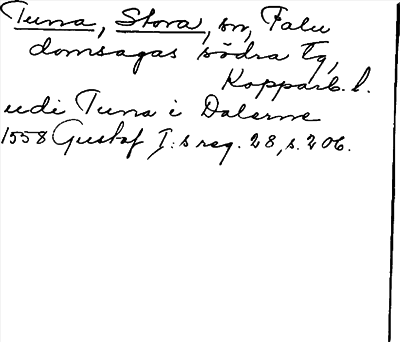 Tuna, Stora, sn, Falu
domsagas södra tg,
Kopparb. l.
udi Tuna i Dalerne
1558 Gustaf I:s reg. 28, s. 206.